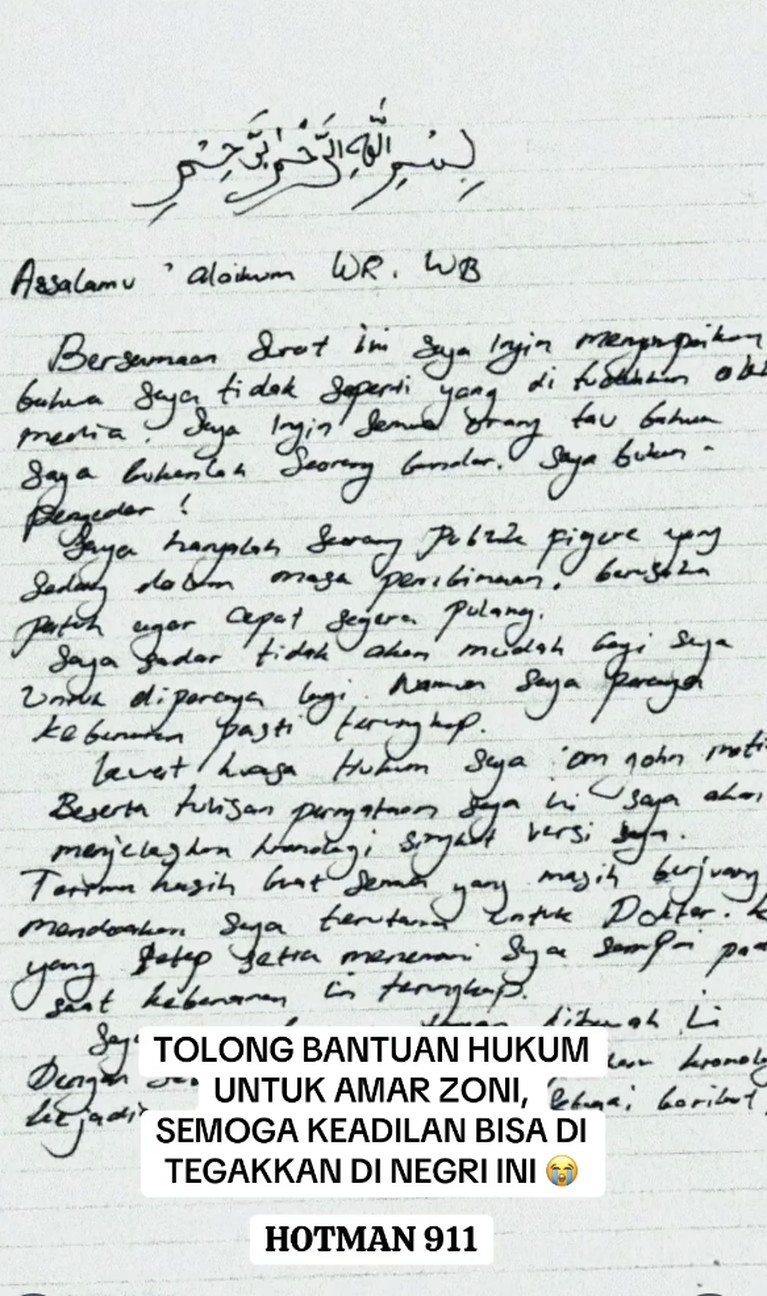 بِسْمِ اللَّهِ الرَّحْمٰنِ الرَّحِيْمِ
Assalamu 'alaikum WR. WB
Bersamaan Surat ini saya Ingin menyampaikan
bahwa saya tidak seperti yang di tuduhkan oleh
media. Saya Ingin Semua orang tau bahwa
saya bukanlah Seorang bandar. Saya bukan -
pengedar !
Saya hanyalah Seorang Publik figere yang
Sedang dalam masa pembinaan. berusaha
patuh agar cepat segera pulang.
Saya sadar tidak akan mudah bagi saya
Untuk dipercaya lagi. Namun saya percaya
kebenaran pasti terungkap.
Lewat kuasa Hukum saya om john
Beserta tulisan pernyataan saya ini saya akan
menjelaskan kronologi singkat versi saya.
Terima kasih buat Semua yang masih berjuang
mendoakan saya terutama untuk Dokter.
yang tetap setia menemani saya sampai pada
saat kebenaran ini terungkap.
Saya dibawah ini
Dengan
kejadian sebagai berikut
TOLONG BANTUAN HUKUM
UNTUK AMAR ZONI,
SEMOGA KEADILAN BISA DI
TEGAKKAN DI NEGRI INI 😭
HOTMAN 911